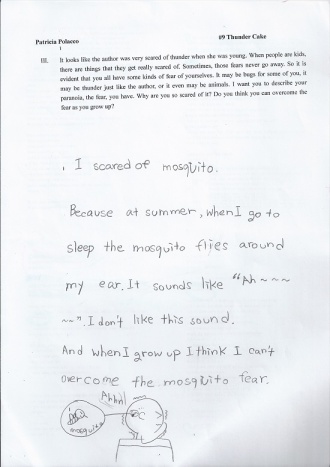 Patricia Polacco
#9 Thunder Cake
III. It looks like the author was very scared of thunder when she was young. When people are kids,
there are things that they get really scared of. Sometimes, those fears never go away. So it is
evident that you all have some kinds of fear of yourselves. It may be bugs for some of you, it
may be thunder just like the author, or it even may be animals. I want you to describe your
paranoia, the fear, you have. Why are you so scared of it? Do you think you can overcome the
fear as you grow up?
I scared of mosquito.
Because at summer, when I go to
sleep the mosquito flies around
my ear. It sounds like "Ah~~~
~~". I don't like this sound.
And when I grow up I think I can't
overcome the mosquito fear.
Ahhh!
mosquito